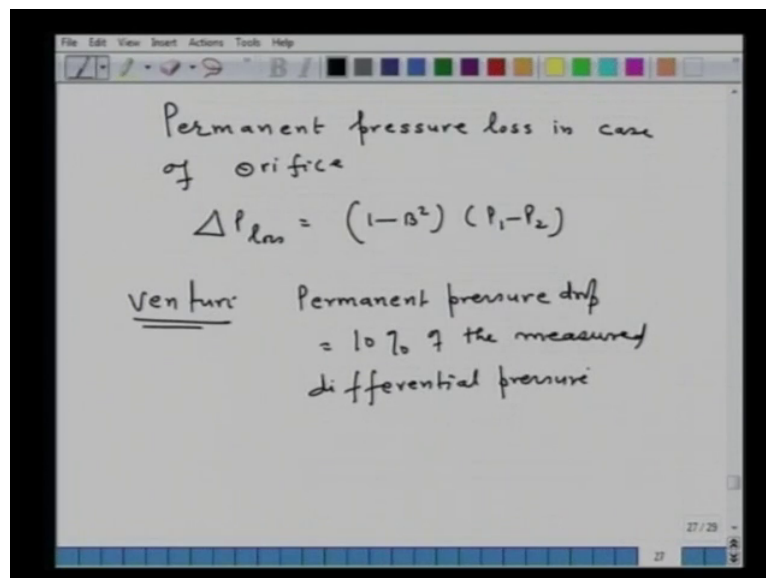 File Edit View Insert Actions Tools Help
B I
Permanent pressure loss in case
of orifice
ΔP loss = (1-B²) (P₁-P₂)
Venturi Permanent pressure drop
= 10% of the measured
differential pressure
27/29
27